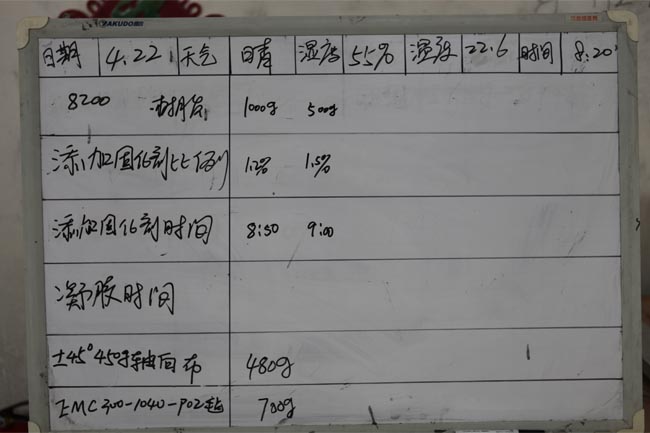 YAKUDO
日期 4.22 天气 日青 湿度 55% 温度 22.6 时间 8:20
8200 树脂 1000g 500g
添加固化剂比例 1.2% 1.5%
添加固化剂时间 8:50 9:00
凝胶时间
±45° 450g 轴向布 480g
EMC300-1040-P02毡 700g